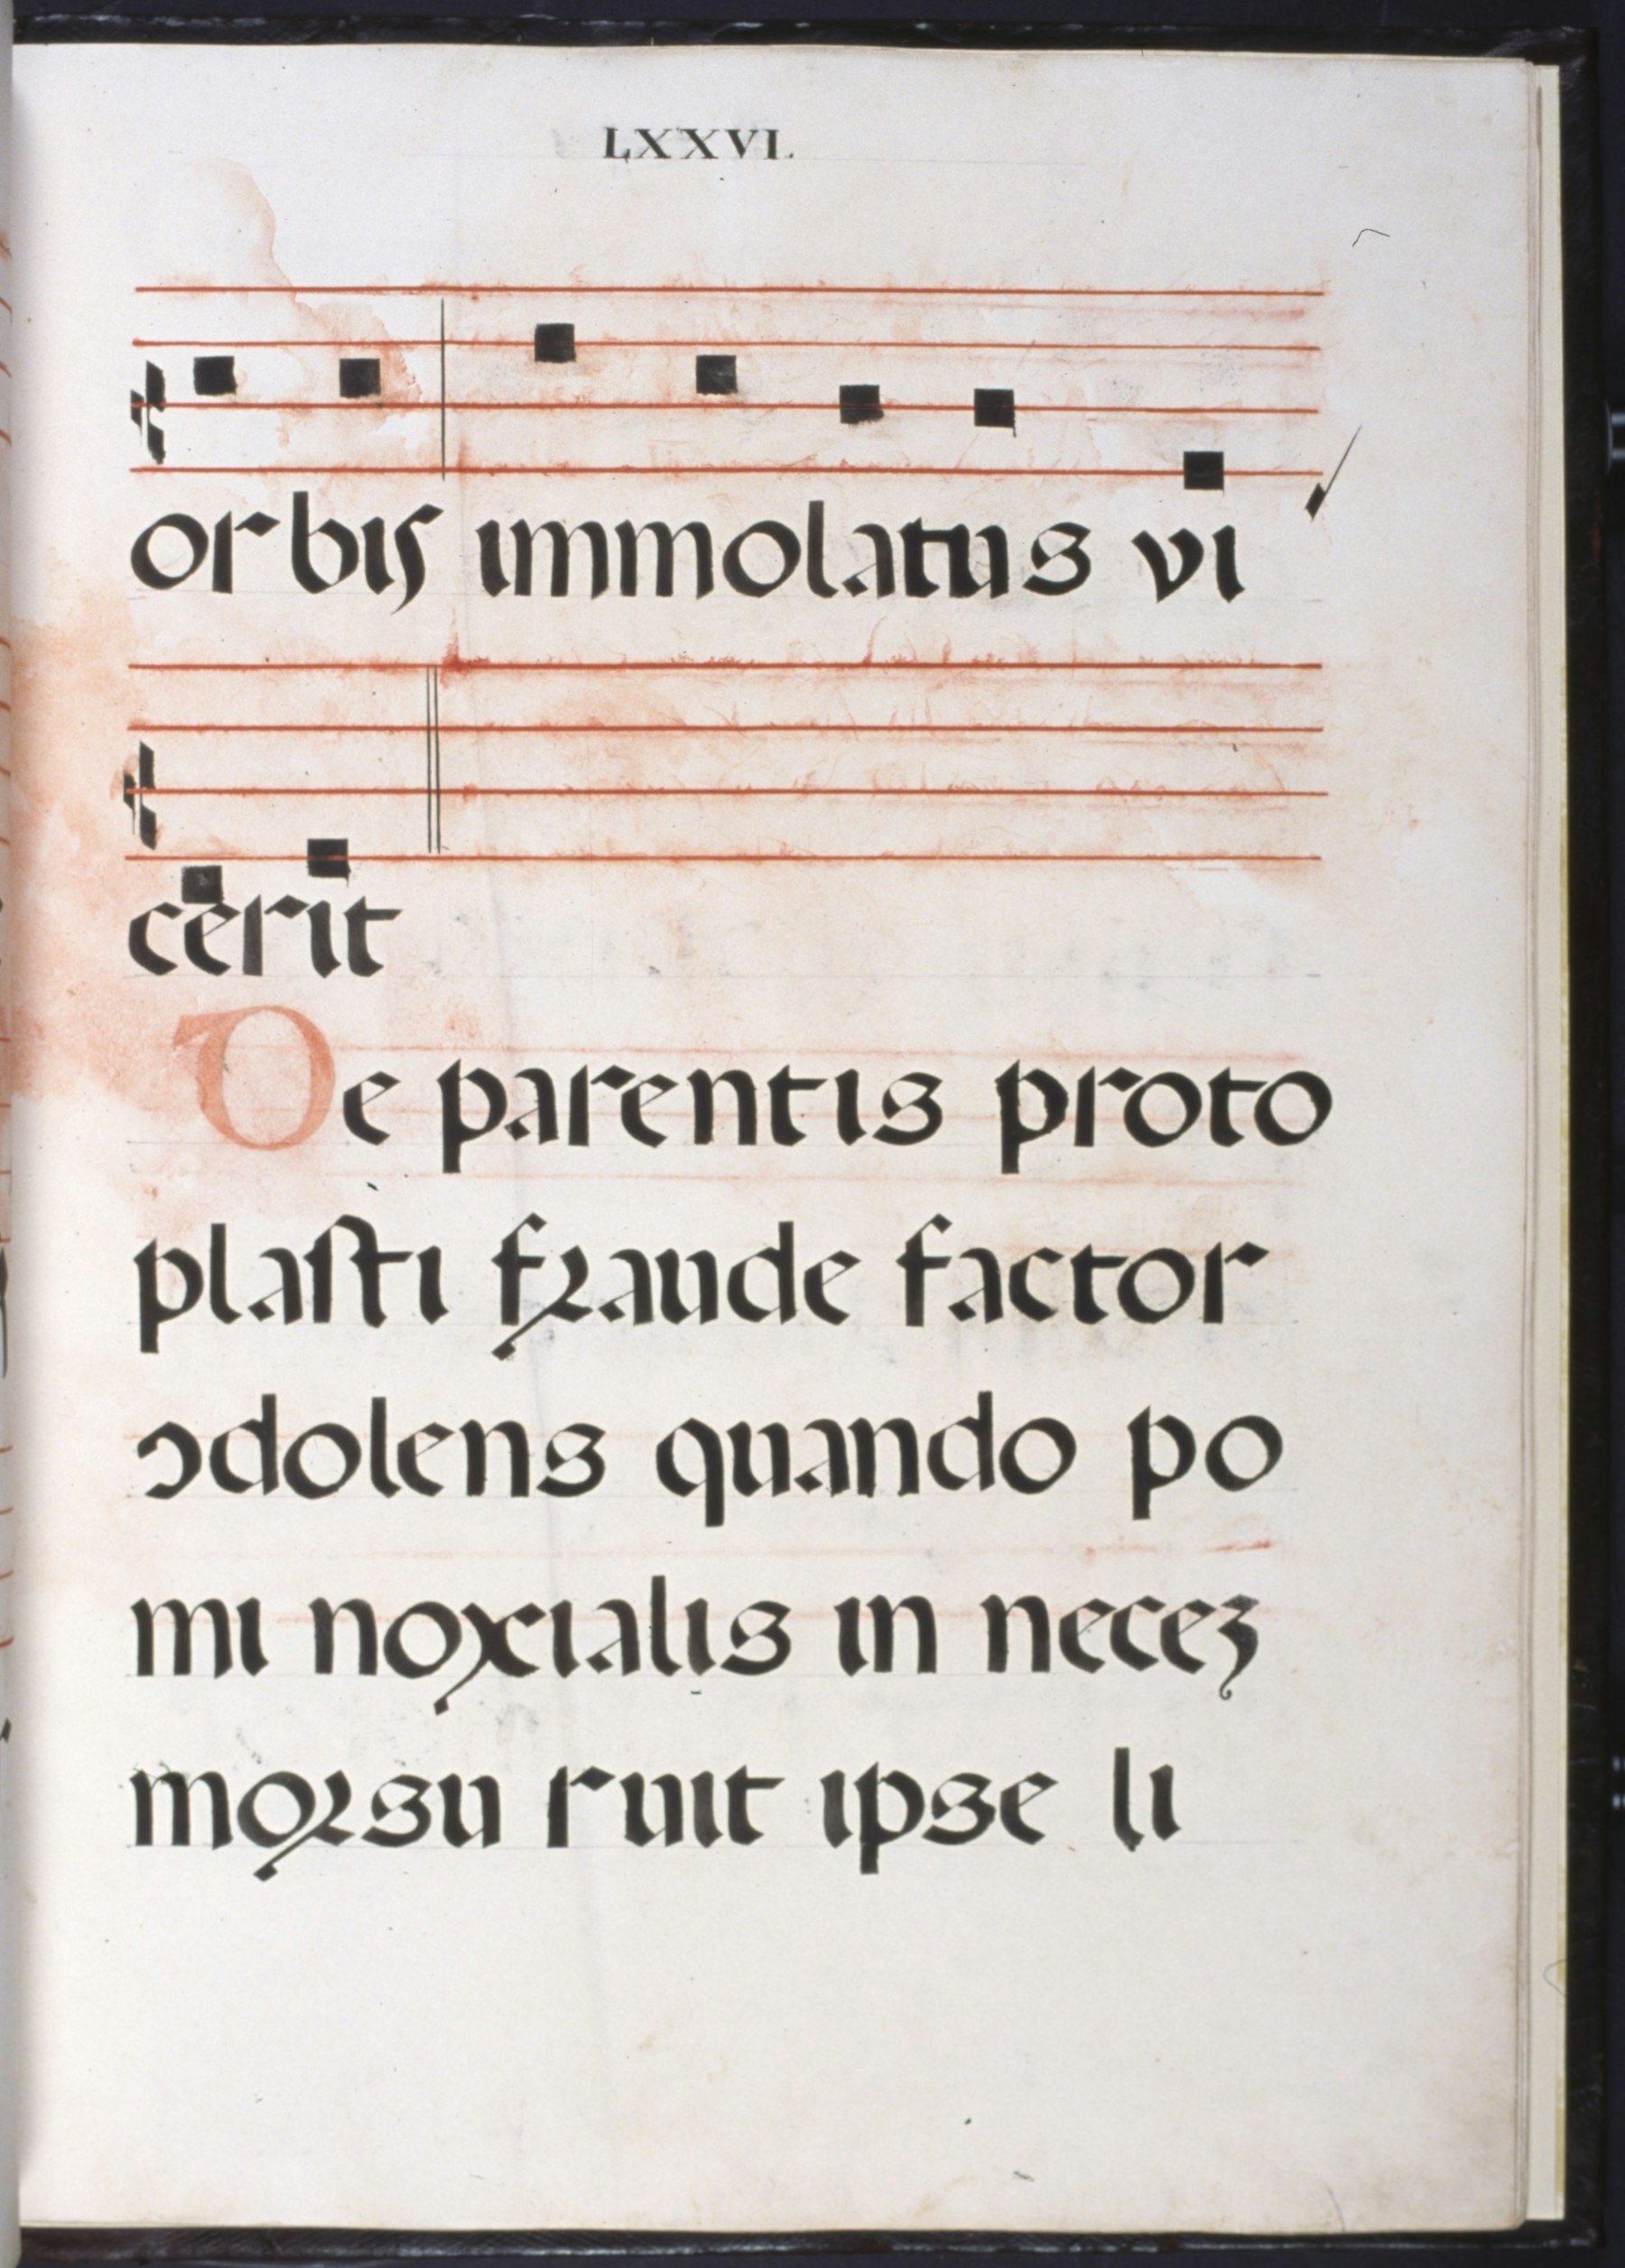 LXXVI.
orbis immolatus vi
cerit
De parentis proto
plaſti fꝛaude factor
ↄdolens quando po
mi noxialis in neceꝫ
moꝛsu ruit ipse li